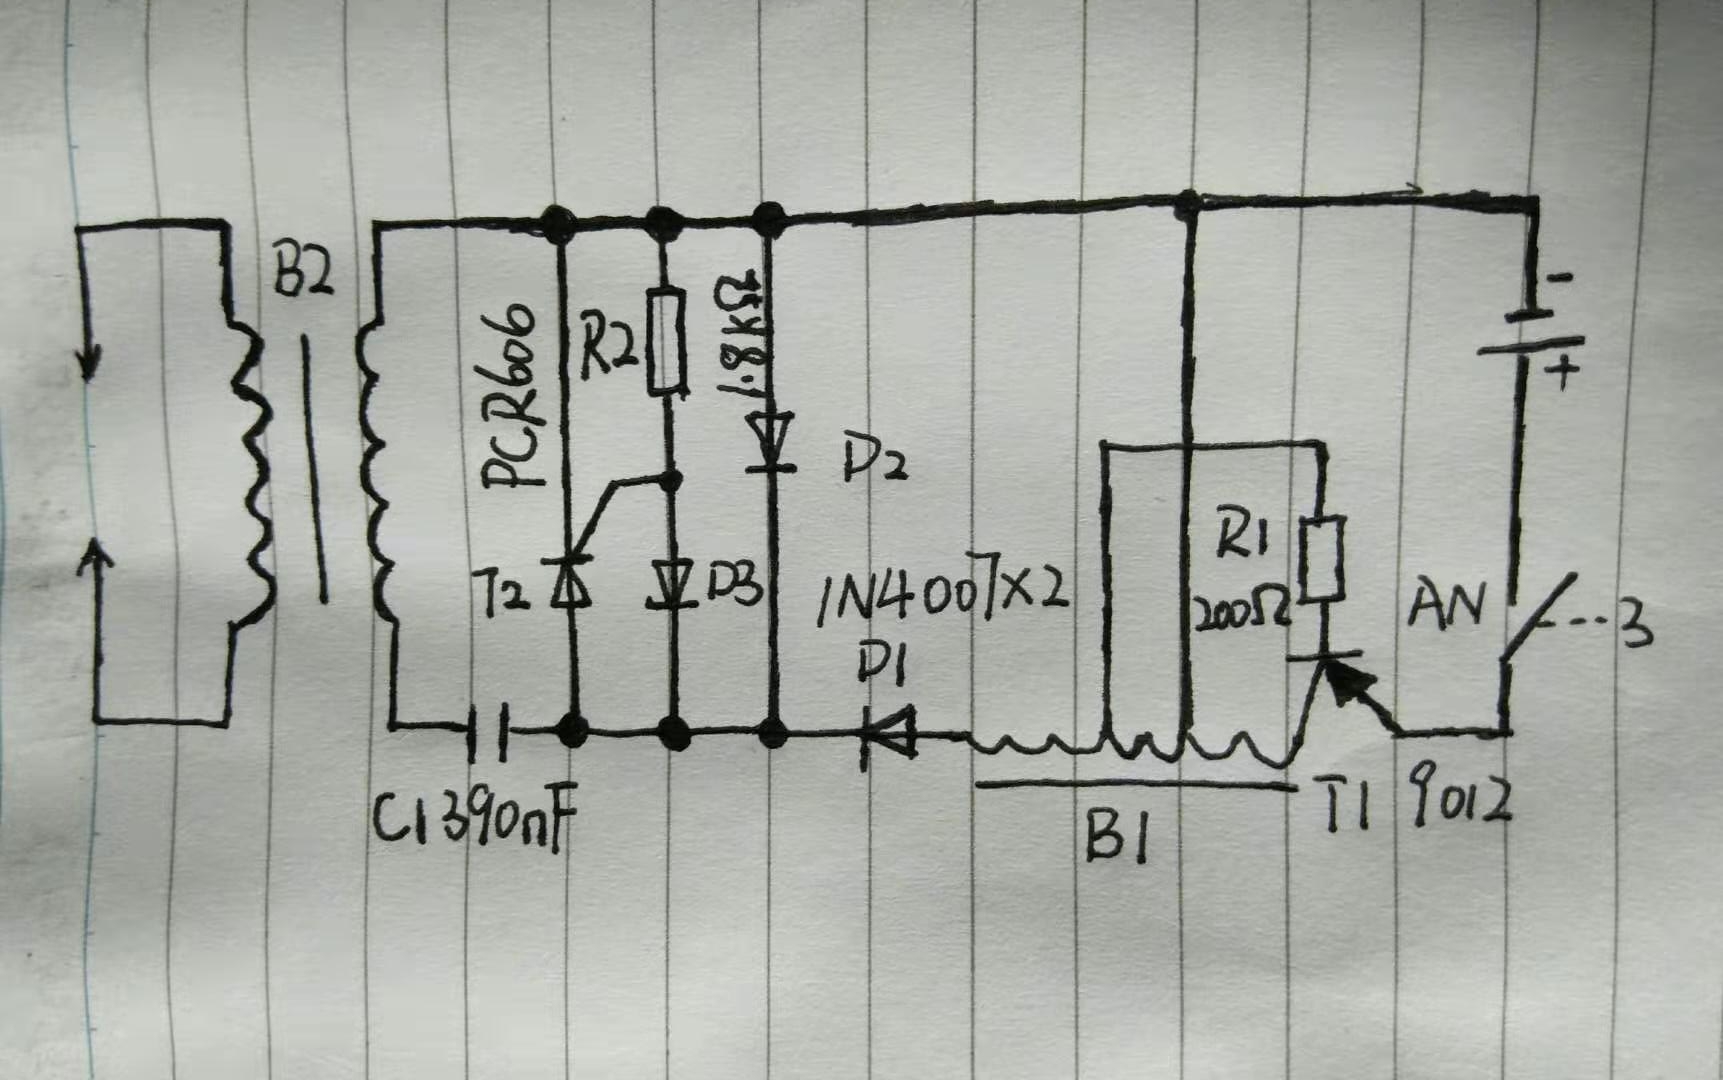 B2
PCR606
R2
1.8kΩ
D2
T2
D3
1N4007×2
D1
R1
200Ω
AN
3
-
+
C1 390nF
B1
T1 9012